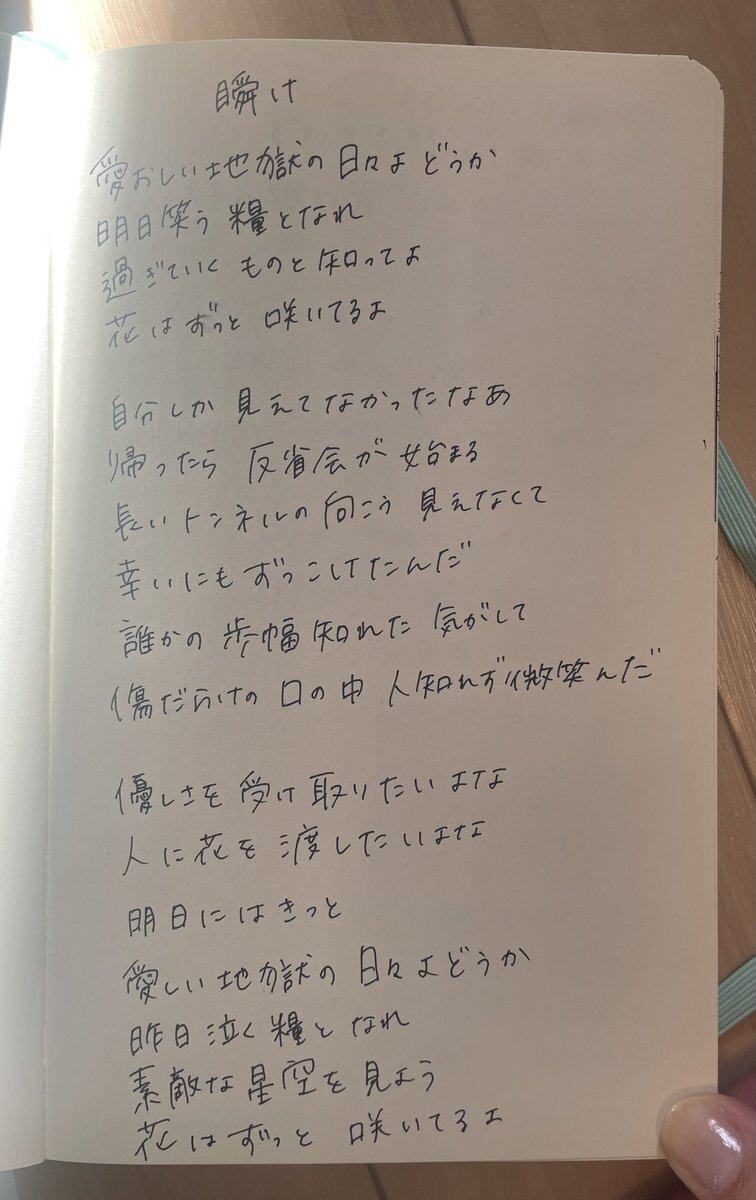 瞬け
愛おしい地獄の日々よ どうか
明日笑う 糧となれ
過ぎていく ものと知ってよ
花は ずっと 咲いてるよ
自分しか 見えてなかったなあ
帰ったら 反省会が 始まる
長いトンネルの 向こう 見えなくて
幸いにも ずっこけたんだ
誰かの 歩幅 知れた 気がして
傷だらけの 口の中 人知れず微笑んだ
優しさを 受け取りたいよな
人に花を 渡したいよな
明日にはきっと
愛しい地獄の 日々よどうか
昨日泣く糧となれ
素敵な星空を見よう
花はずっと 咲いてるよ